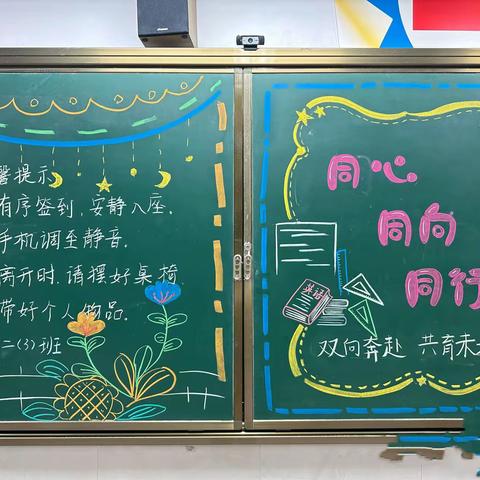 馨提示
有序签到,安静入座.
手机调至静音.
离开时.请摆好桌椅
带好个人物品.
二(3)班
同心
同向
同行
英语
双向奔赴 共育未